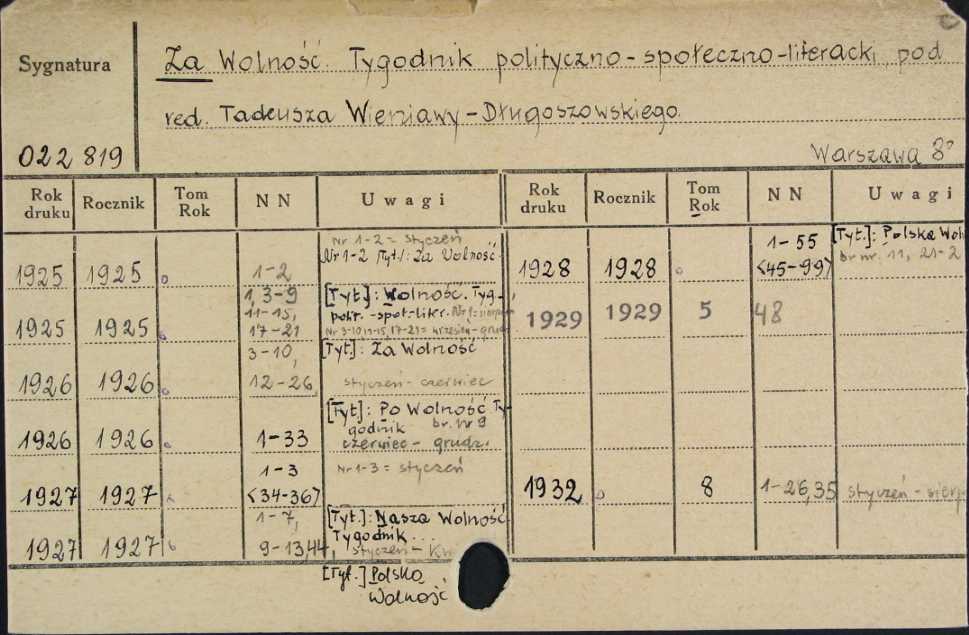 Sygnatura
022 819
Za Wolność. Tygodnik polityczno-społeczno-literacki pod
red. Tadeusza Wieniawy-Długoszowskiego.
Warszawa 8°
Rok druku Rocznik Tom Rok NN Uwagi Rok druku Rocznik Tom Rok NN Uwagi
Nr 1-2 = styczeń
1925 1925 1-2 Nr 1-2 [Tyt.]: Za Wolność
1, 3-9 [Tyt.]: Wolność. Tyg.
11-15, polit.-społ.-liter.
1925 1925 17-21 Nr 3-10, 11-15, 17-21 = wrzesień-grudz
3-10, [Tyt.]: Za Wolność
1926 1926 12-26, styczeń-czerwiec
[Tyt.]: Po Wolność Ty-
godnik br. nr 9
1926 1926 1-33 czerwiec-grudz.
1-3 Nr 1-3 = styczeń
1927 1927 <34-36>
1-7, [Tyt.]: Nasza Wolność
Tygodnik...
1927 1927 9-13,44, styczeń-Kw
[Tyt.] Polska
Wolność
1-55 [Tyt.]: Polska Wol
1928 1928 <45-99> br nr. 11, 21-2
1929 1929 5 48
1932 8 1-26,35 styczeń-sierp